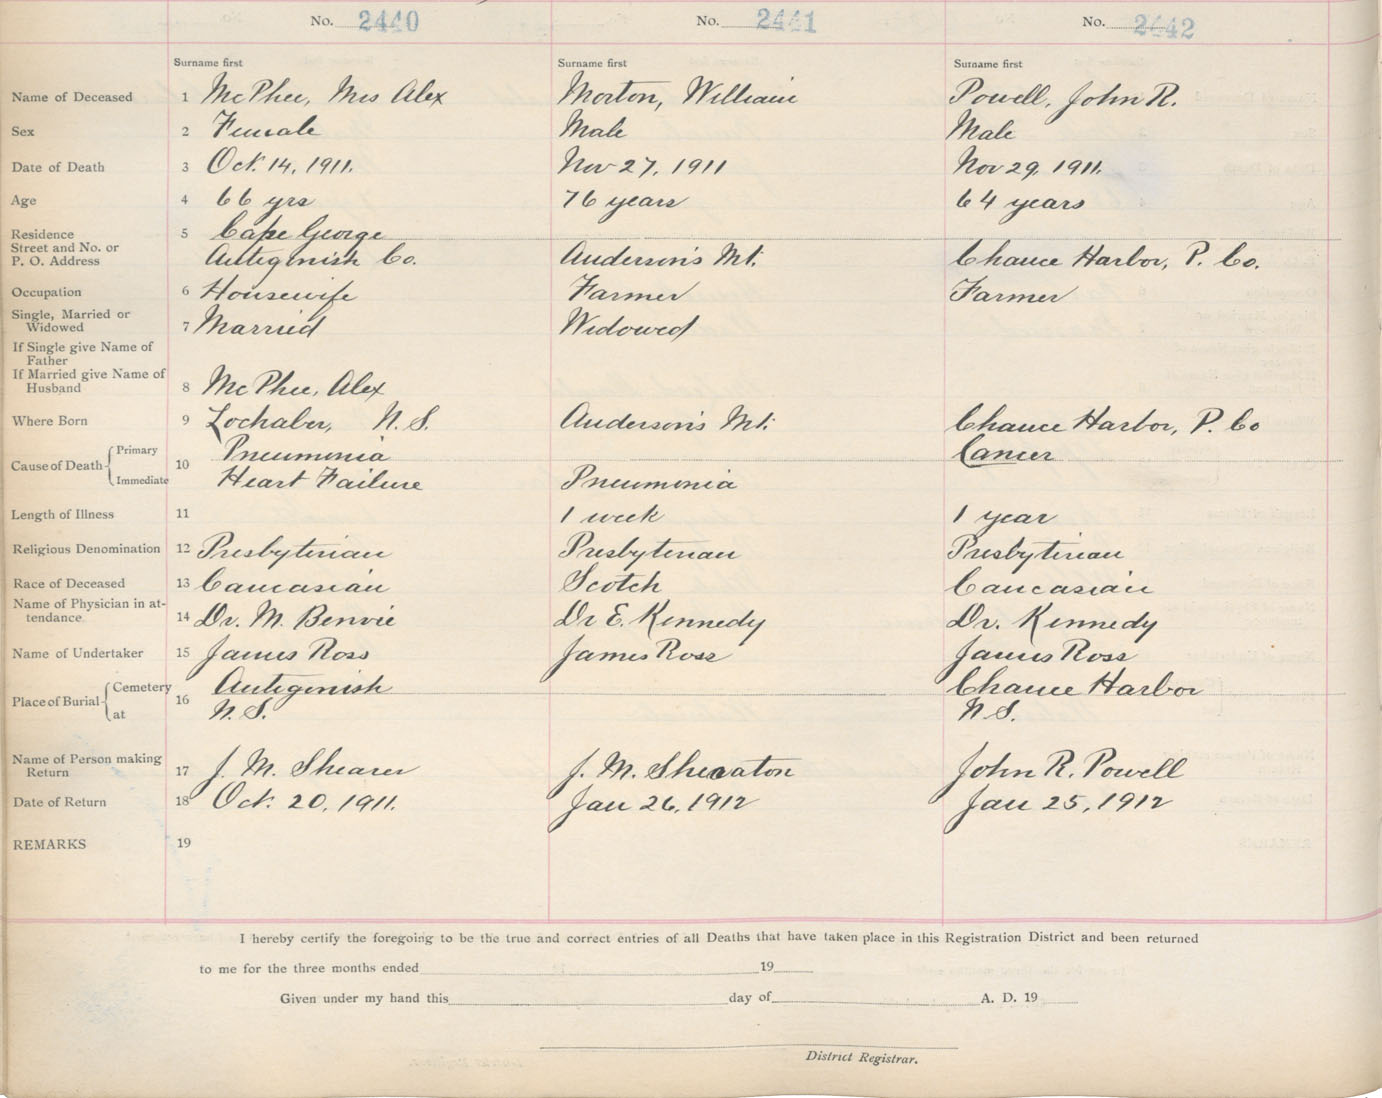 No. 2440 No. 2441 No. 2442
Surname first Surname first Surname first
Name of Deceased 1 McPhee, Mrs Alex Morton, William Powell, John R.
Sex 2 Female Male Male
Date of Death 3 Oct. 14, 1911. Nov 27, 1911 Nov 29, 1911.
Age 4 66 yrs 76 years 64 years
Residence 5 Cape George
Street and No. or
P. O. Address Antigonish Co. Anderson's Mt. Chance Harbor, P. Co.
Occupation 6 Housewife Farmer Farmer
Single, Married or
Widowed 7 Married Widowed
If Single give Name of
Father
If Married give Name of
Husband 8 McPhee, Alex
Where Born 9 Lochaber, N. S. Anderson's Mt. Chance Harbor, P. Co
Cause of Death Primary 10 Pneumonia Cancer
Immediate Heart Failure Pneumonia
Length of Illness 11 1 week 1 year
Religious Denomination 12 Presbyterian Presbyterian Presbyterian
Race of Deceased 13 Caucasian Scotch Caucasian
Name of Physician in at-
tendance 14 Dr. M. Benvie Dr E. Kennedy Dr. Kennedy
Name of Undertaker 15 James Ross James Ross James Ross
Place of Burial Cemetery 16 Antigonish Chance Harbor
at N. S. N. S.
Name of Person making
Return 17 J. M. Shearer J. M. Sheraton John R. Powell
Date of Return 18 Oct. 20, 1911. Jan 26, 1912 Jan 25, 1912
REMARKS 19
I hereby certify the foregoing to be the true and correct entries of all Deaths that have taken place in this Registration District and been returned
to me for the three months ended 19
Given under my hand this day of A. D. 19
District Registrar.